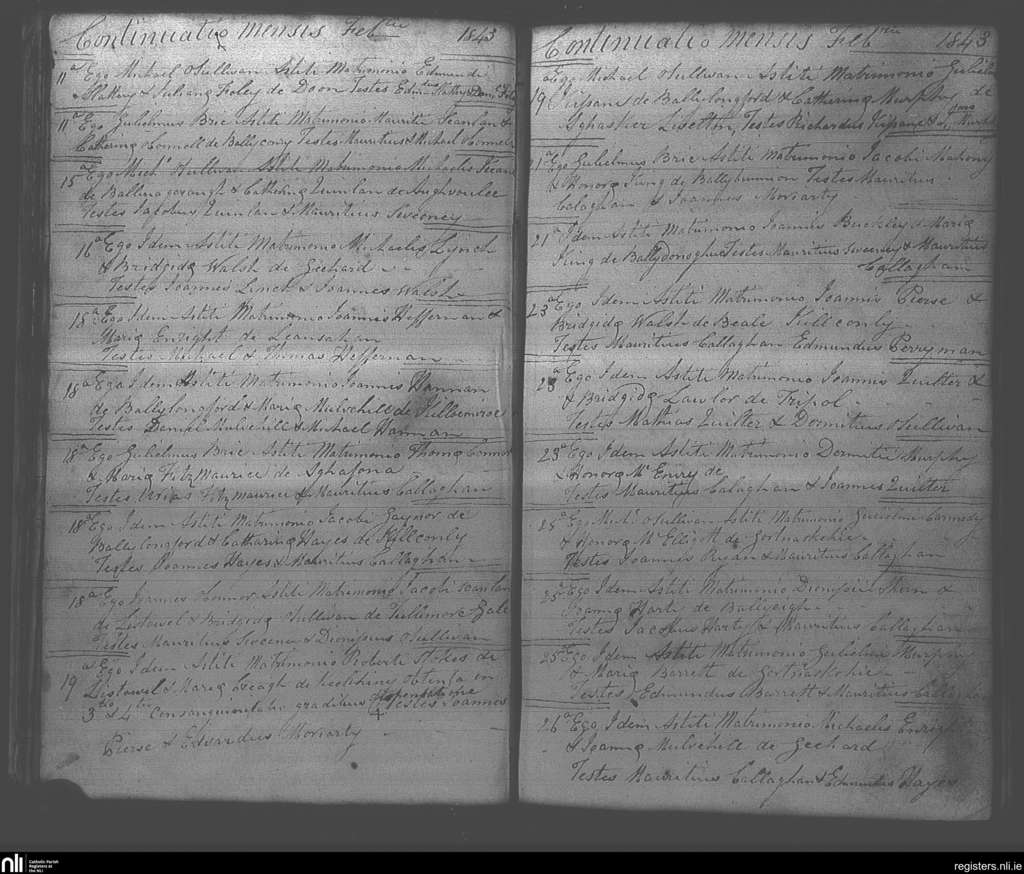 Continuatio Mensis Feb 1843
11a Ego Michael OSullivan Astiti Matrimonio Edmundi
Slattery & Juliana Foley de Doon Testes Slattery
11a Ego Gulielmus Brie Astiti Matrimonio Mauritii Scanlan &
Catherina Connell de Ballyconry Testes Mauritius & Michael Connell
15a Ego Mich Sullivan Astiti Matrimonio Michaelis
de & Catherina Quinlan de
Testes Jacobus Quinlan & Mauritius Sweeney
16a Ego Idem Astiti Matrimonio Michaelis Lynch
& Bridgida Walsh de Geehard
Testes Joannes Linch & Joannes Walsh
18a Ego Idem Astiti Matrimonio Joannis Heffernan &
Maria Enright de
Testes Michael & Thomas Heffernan
18a Ego Idem Astiti Matrimonio Joannis Hannan
de Ballylongford & Maria Mulvehill de
Testes Daniel Mulvehill & Michael Hannan
18a Ego Gulielmus Brie Astiti Matrimonio Thoma Connor
& Maria FitzMaurice de Aghafona
Testes Urias Fitzmaurice & Mauritius Callaghan
18a Ego Idem Astiti Matrimonio Jacobi Gaynor de
Ballylongford & Catharina Hayes de Killconly
Testes Joannes Hayes & Mauritius Callaghan
18a Ego Joannes Connor Astiti Matrimonio Jacobi Scanlan
de Listowel & Bridgida OSullivan de Tullimore Gale
Testes Mauritius & Dionysius OSullivan
19a Ego Idem Astiti Matrimonio Roberti Stokes de
Listowel & Maria de obtenta in
3tio & 4to Consanguinitatis gradibus dispensatione Testes Joannes
Pierse & Edvardus Moriarty
Continuatio Mensis Feb 1843
19a Ego Michael OSullivan Astiti Matrimonio
de Ballylongford & Catherina Murphy de
Liselton, Testes Richardus &
21a Ego Gulielmus Brie Astiti Matrimonio Jacobi Mahony
& Honora King de Ballybunnion Testes Mauritius
Calaghan & Joannes Moriarty
21a Idem Astiti Matrimonio Joannis Buckley & Maria
King de BallyDonoghue Testes Mauritius Sweeney & Mauritius
Callagham
23a Ego Idem Astiti Matrimonio Joannis Pierse &
Bridgida Walsh de Beale Killconly
Testes Mauritius Callaghan Edmundus Perryman
23a Ego Idem Astiti Matrimonio Joannis Quilter &
& Bridgida Lawlor de Tripol
Testes Mathias Quilter & Dermitius OSullivan
23a Ego Idem Astiti Matrimonio Dermitii Murphy
& Honora Mc Enry de
Testes Mauritius Calaghan & Joannes Quilter
25a Ego Michl OSullivan Astiti Matrimonio Gulielmi
& Honora Mc Elligott de
Testes Joannis Ryan & Mauritius Callaghan
25a Ego Idem Astiti Matrimonio Dionysii &
Joanna Harty de Ballyeigh
Testes Jacobus Harty & Mauritius Callaghan
25a Ego Idem Astiti Matrimonio Gulielmi Murphy
& Maria Barrett de
Testes Edmundus Barrett & Mauritius Callaghan
26a Ego Idem Astiti Matrimonio Michaelis Enright
& Joanna Mulvehill de Geehard
Testes Mauritius Callaghan & Edmundus Hayes
nli Catholic Parish
Registers at
the NLI
registers.nli.ie